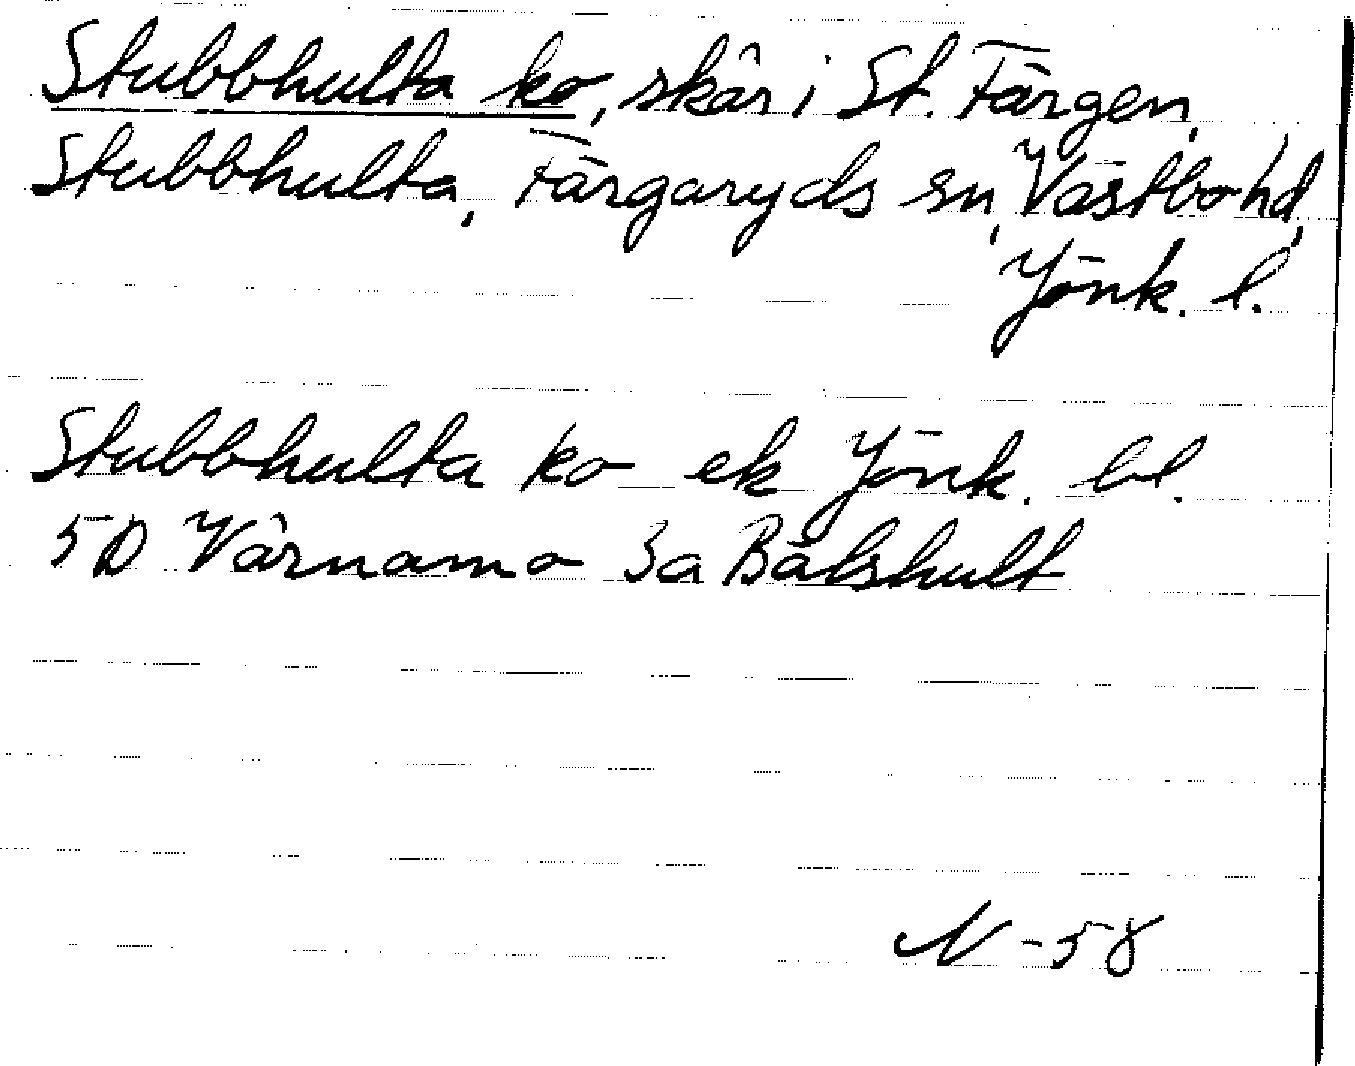 Stubbhulta ko, skär i St. Färgen,
Stubbhulta, Färgaryds sn, Västbo hd,
Jönk. l.
Stubbhulta ko ek Jönk. bl.
5D Värnamo 3a Bälshult
N-58